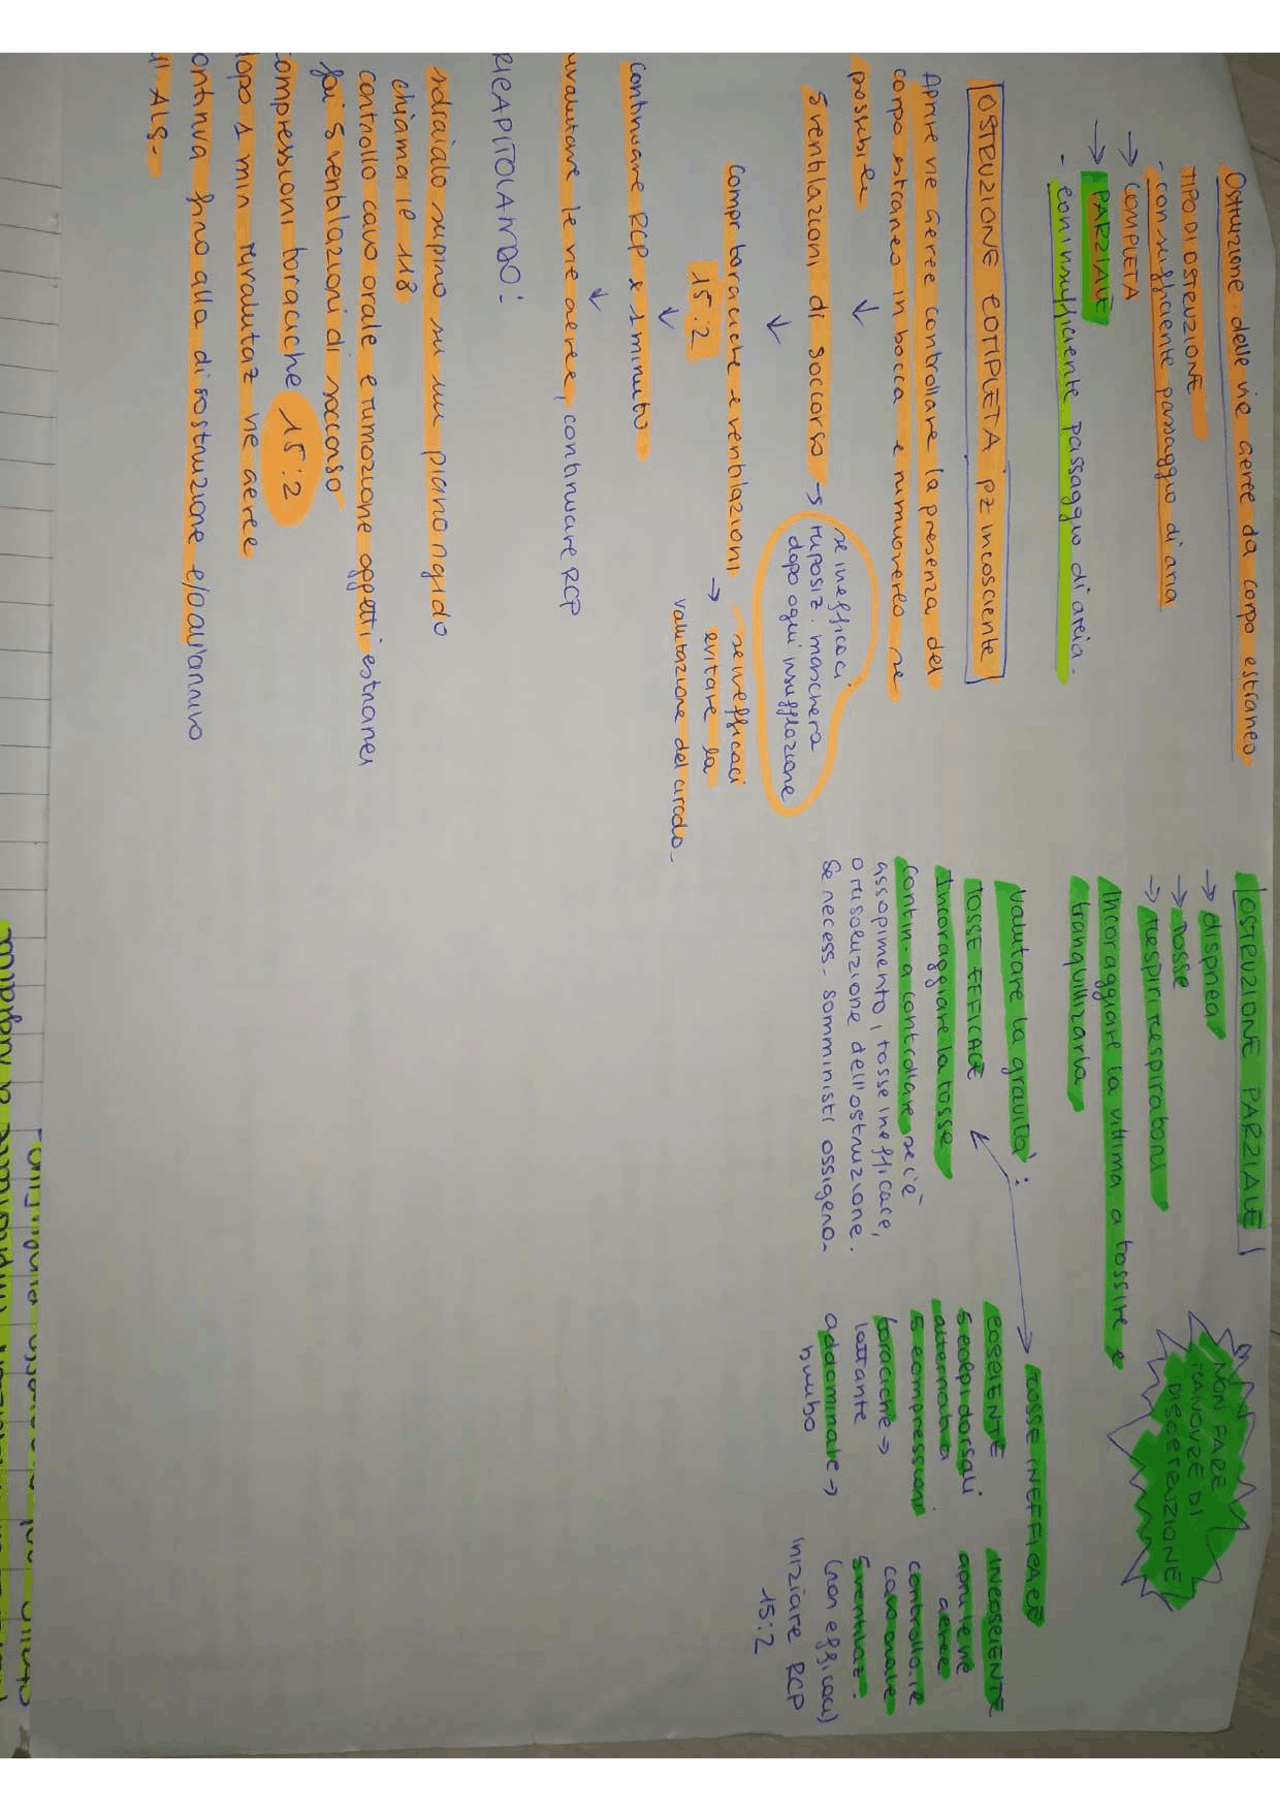 Ostruzione delle vie aeree da corpo estraneo
TIPO DI OSTRUZIONE
- con sufficiente passaggio di aria
→ COMPLETA
→ PARZIALE
- con insufficiente passaggio di aria.
OSTRUZIONE COMPLETA pz incosciente
Aprire vie aeree controllare la presenza del
corpo estraneo in bocca e rimuoverlo se
possibile
↓
5 ventilazioni di soccorso → se inefficaci
riposiz. maschera
dopo ogni insufflazione
↓
Compr toraciche e ventilazioni
15:2
→ se inefficaci
evitare la
valutazione del circolo.
↓
Continuare RCP x 1 minuto
↓
rivalutare le vie aeree, continuare RCP
RICAPITOLANDO:
sdraialo supino su un piano rigido
chiama le 118
controllo cavo orale e rimozione oggetti estranei
fai 5 ventilazioni di soccorso
compressioni toraciche 15:2
dopo 1 min rivalutaz vie aeree
continua fino alla disostruzione e/o all'arrivo
ALS.
OSTRUZIONE PARZIALE
→ dispnea
→ Tosse
→ Respiri respiratori
Incoraggiare la vittima a tossire e
tranquillizzarla
NON FARE
MANOVRE DI
DISOSTRUZIONE
Valutare la gravità:
TOSSE EFFICACE
Incoraggiare la tosse
Contin. a controllare se c'è
assopimento, tosse inefficace,
o risoluzione dell'ostruzione.
Se necess. somministr ossigeno.
TOSSE INEFFICACE
COSCIENTE
5 colpi dorsali
alternati a
5 compressioni
toraciche →
lattante
addominale →
bimbo
INCOSCIENTE
apri le vie
aeree
controllo.re
cavo orale
5 ventilaz.
(non efficaci)
iniziare RCP
15:2